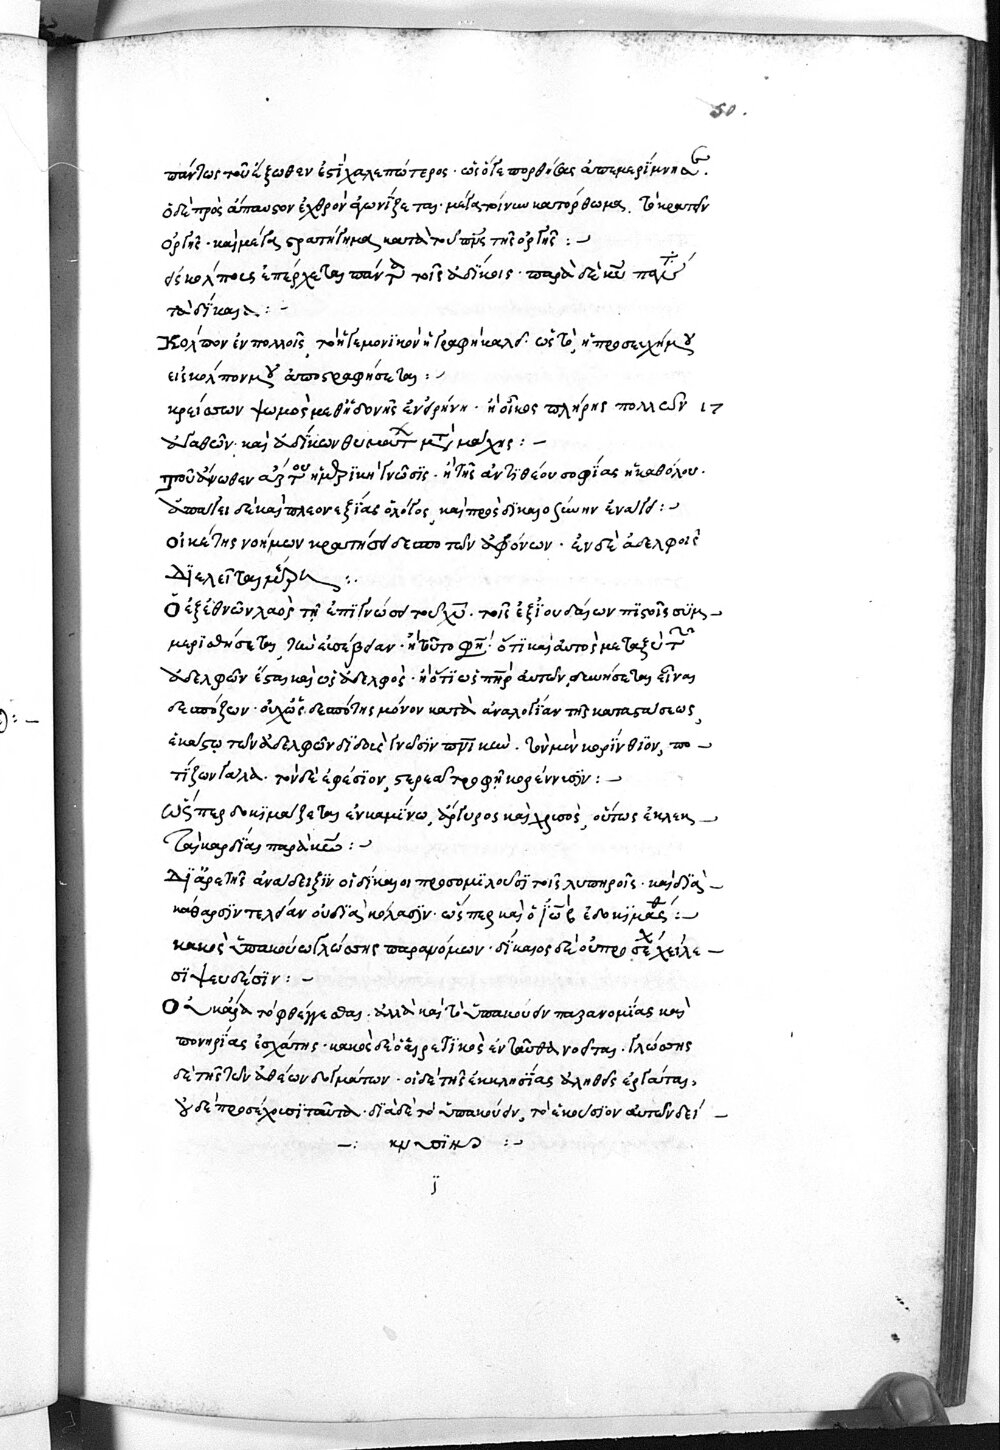 50.
πάντως τοῦ ἔξωθεν ἐστὶ χαλεπώτερος· ὡς ὅτε πορθήσας ἀπεμερίμνησ
ὁ δὲ πρὸς ἄπαυστον ἐχθρὸν ἀγωνίζεται· μέγα τοίνυν κατόρθωμα, τὸ κρατεῖν
ὀργῆς· καὶ μέγα στρατήγημα κατὰ τοῦ πνς τῆς ὀργῆς :
εἰς κόλπους ἐπέρχεται πάντα τοῖς ἀδίκοις· παρὰ δὲ κυ πάντα
τὰ δίκαια :
Κόλπον ἐν πολλοῖς, τὸ ἡγεμονικὸν ἡ γραφὴ καλεῖ· ὡς τὸ, ἡ προσευχή μου
εἰς κόλπον μου ἀποστραφήσεται :
κρείσσων ψωμὸς μεθ' ἡδονῆς ἐν εἰρήνη· ἢ οἶκος πλήρης πολλῶν 17
ἀγαθῶν· καὶ ἀδίκων θυμάτ μετὰ μάχης :
Ἡ τοῦ ἄνωθεν ἄρτου ἡ μερικὴ γνῶσις· ἢ τῆς ἀντιθέου σοφίας ἡ καθόλου·
ἀπάγει δὲ καὶ πλεονεξίας ὁ λόγος, καὶ πρὸς δικαίο ζωὴν ἐνάγει :
οἰκέτης νοήμων κρατήσει δεσποτῶν ἀφόνων· ἐν δὲ ἀδελφοῖς
διελεῖται μέρη :
Ὁ ἐξ ἐθνῶν λαὸς τῇ ἐπιγνώσει τοῦ χυ· τοῖς ἐξ ἰουδαίων πιστοῖς συμ
μερισθήσεται, τὴν εὐσέβειαν· ἢ τοῦτο φησὶ· ὅτι καὶ αὐτὸς μεταξὺ τῶν
ἀδελφῶν ἔσται καὶ ὡς ἀδελφὸς· ἢ ὅτι ὡς πηρ αὐτῶν, εἶναι
δεσπόζων· οὐχ ὡς δεσπότης μόνον κατὰ ἀναλογίαν τῆς καταστάσεως,
ἑκάστῳ τῶν ἀδελφῶν διδοὺς γνῶσιν πνικὴν· τὸν μὲν κορίνθιον, πο
τίζων γάλα· τὸν δὲ ἐφέσιον, στερεᾷ τροφῇ κορέννυσιν :
Ὥσπερ δοκιμάζεται ἐν καμίνω, ἄργυρος καὶ χρυσὸς, οὕτως ἐκλεκ
ταὶ καρδίαι παρὰ κω :
Δι' ἀρετῆς ἀνάδειξιν οἱ δίκαιοι προσομιλοῦσι τοῖς λυπηροῖς· καὶ διὰ
κάθαρσιν τελείαν οὐ διὰ κόλασιν· ὥσπερ καὶ ὁ ἰὼβ ἐδοκιμάσθ :
κακὸς ὑπακούει γλώσσης παρανόμων· δίκαιος δὲ οὐ προσέχ χείλε
σι ψευδέσιν :
Οὐ κακία τὸ φθέγγεσθαι· ἀλλὰ καὶ τὸ ὑπακούειν παρανομίας καὶ
πονηρίας ἐσχάτης· κακὸς δὲ ὁ αἱρετικὸς ἐνταῦθα νοεῖται· γλώσσης
δὲ τῆς τῶν ἀθέων δογμάτων· οἱ δὲ τῆς ἐκκλησίας ἀληθεῖς ἐργάται,
οὐ δὲ προσέχουσι ταῦτα· διὰ δὲ τὸ ὑπακούειν, τὸ ἑκούσιον αὐτῶν δεί
κνυσιν :
ϊ